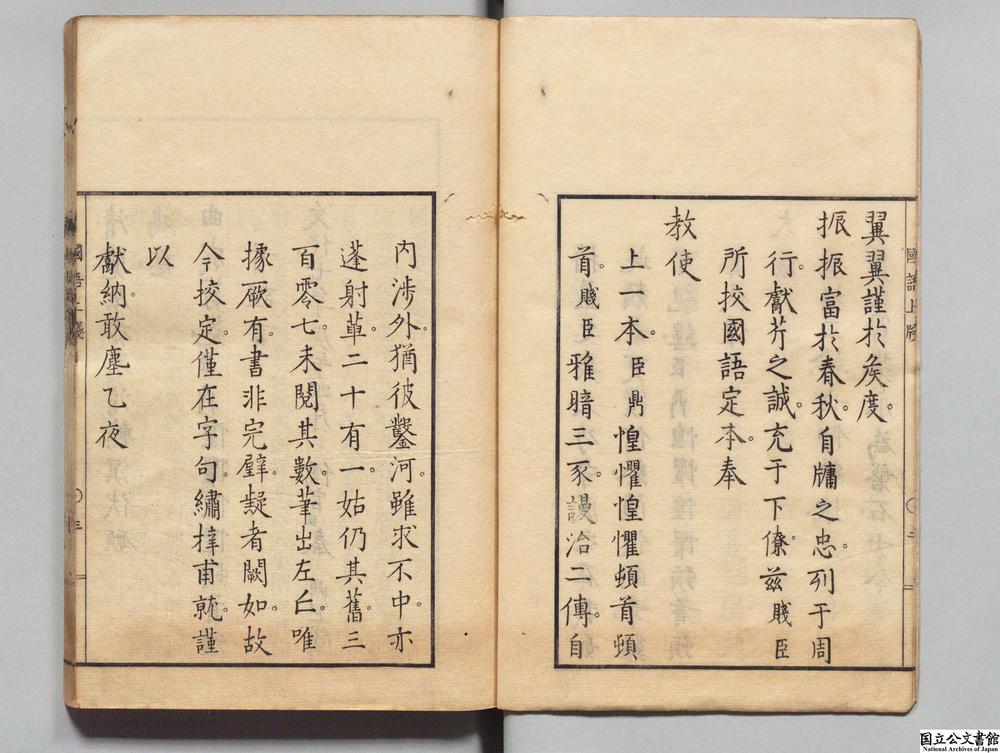 翼翼謹於矦度。
振振富於春秋。自牖之忠。列于周
行。獻芹之誠。充于下僚。茲賤臣
所挍國語定本。奉
教使
上本。臣鼎惶懼惶懼頓首頓
首。賤臣雅暗三豕。謾治二傳。自
國語上牋
內涉外。猶彼鑿河。雖求不中。亦
蓬射革。二十有一。姑仍其舊。三
百零七。未閱其數。筆出左丘。唯
據厥有。書非完璧。疑者闕如。故
今挍定。僅在字句。繡梓甫就。謹
以
獻納。敢塵乙夜
國語上牋
三
国立公文書館
National Archives of Japan